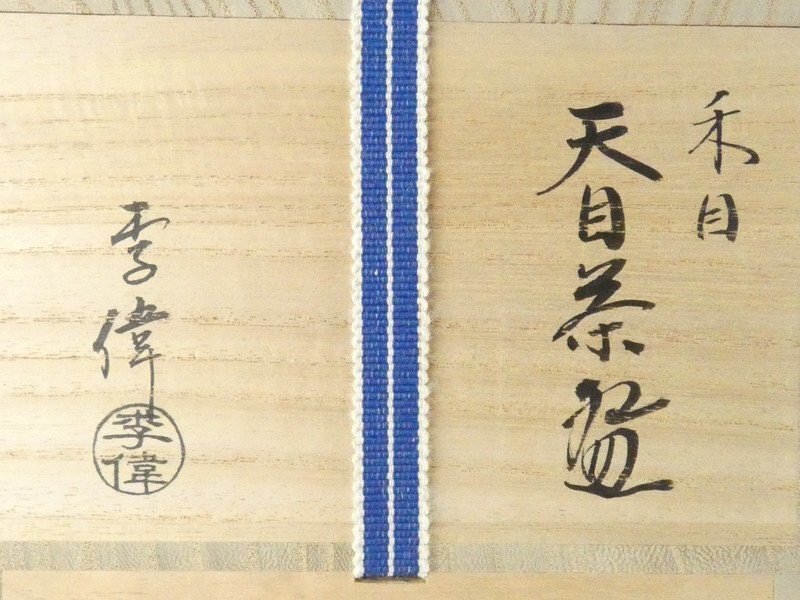 禾目
天目茶盌
李偉
李偉